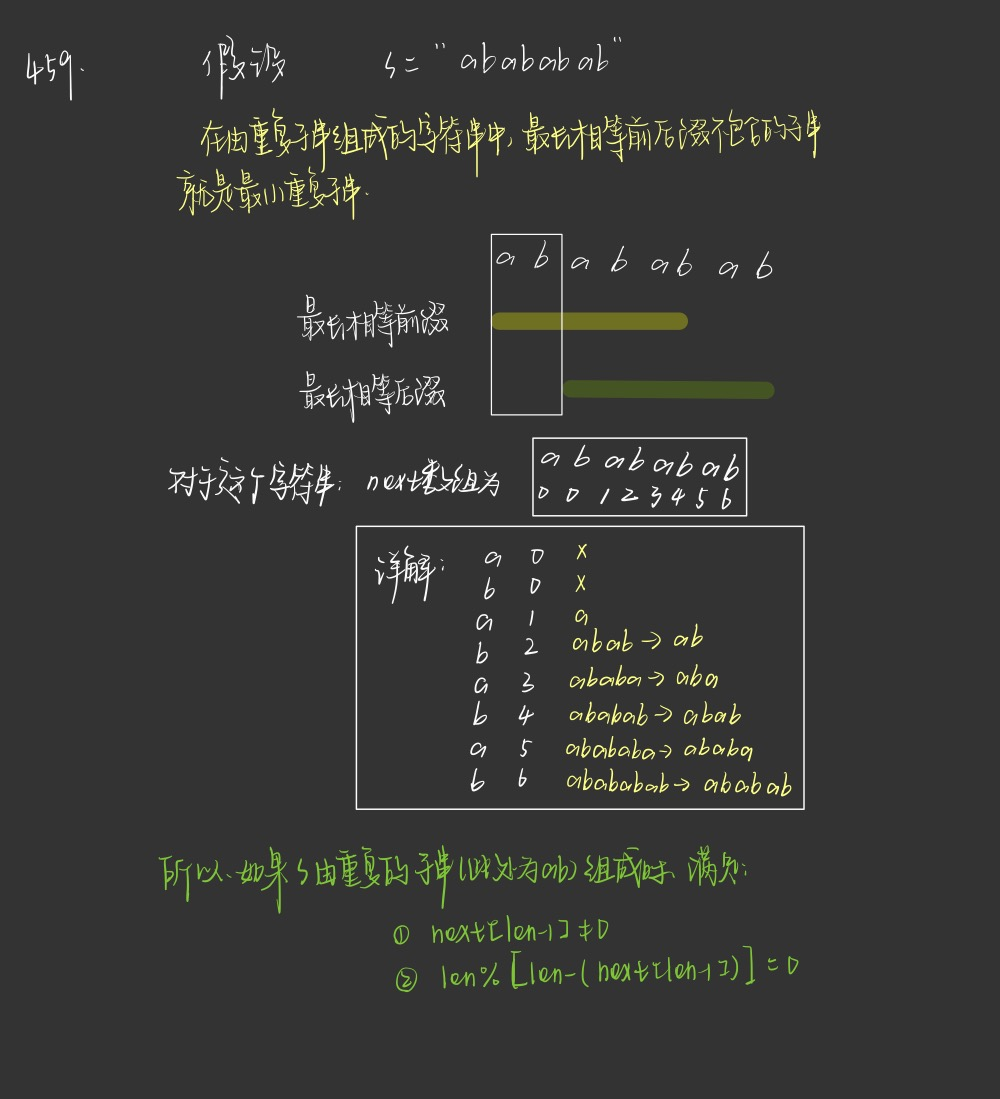 459. 假设 s = "abababab"
在由重复子串组成的字符串中,最长相等前后缀不包含的子串
就是最小重复子串.
a b a b a b a b
最长相等前缀
最长相等后缀
对于这个字符串: next数组为
a b a b a b a b
0 0 1 2 3 4 5 6
详解: a 0 x
b 0 x
a 1 a
b 2 abab → ab
a 3 ababa → aba
b 4 ababab → abab
a 5 abababa → ababa
b 6 abababab → ababab
所以、如果s由重复的子串(此处为ab)组成时、满足:
① next[len-1] ≠ 0
② len % [len - (next[len-1])] = 0